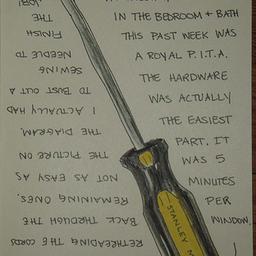 IN THE BEDROOM + BATH
THIS PAST WEEK WAS
A ROYAL P.I.T.A.
THE HARDWARE
WAS ACTUALLY
THE EASIEST
PART. IT
WAS 5
MINUTES
PER
WINDOW.
RETHREADING THE CORDS
BACK THROUGH THE
REMAINING ONES.
NOT AS EASY AS
THE PICTURE ON
THE DIAGRAM.
I ACTUALLY HAD
TO BUST OUT A
SEWING
NEEDLE TO
FINISH
THE
JOB!
STANLEY